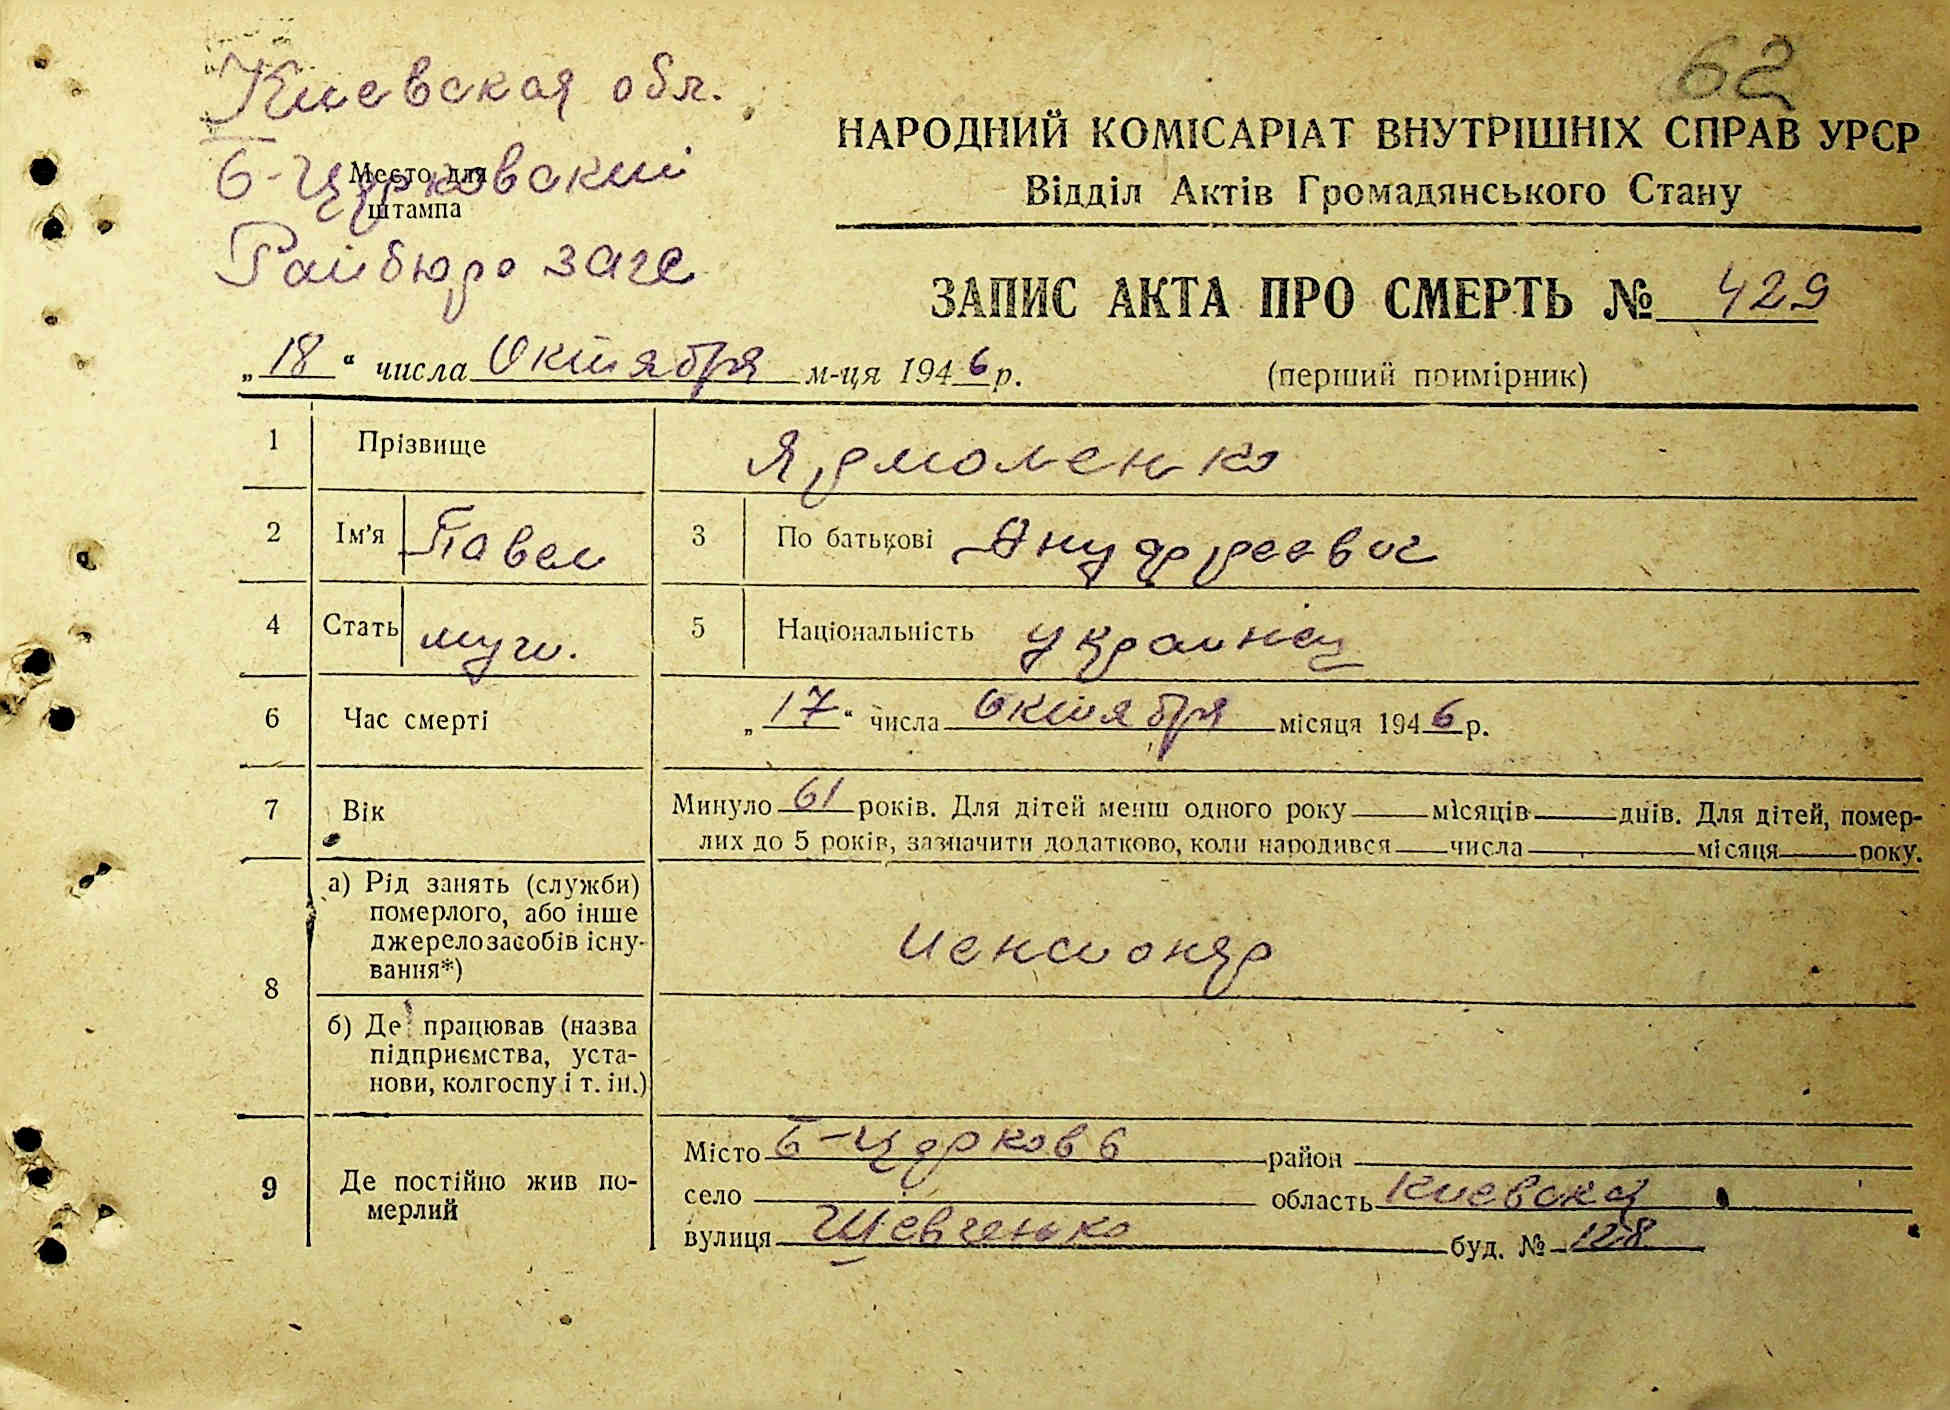 62
Киевская обл.
Б-Церковский
Место для
штампа
Райбюро загс
НАРОДНИЙ КОМІСАРІАТ ВНУТРІШНІХ СПРАВ УРСР
Відділ Актів Громадянського Стану
ЗАПИС АКТА ПРО СМЕРТЬ № 429
„18“ числа Октября м-ця 1946 р.
(перший примірник)
1 Прізвище Ярмоленко
2 Ім'я Павел 3 По батькові Ануфреевич
4 Стать муж. 5 Національність украинец
6 Час смерті „17“ числа Октября місяця 1946 р.
7 Вік Минуло 61 років. Для дітей менш одного року місяців днів. Для дітей, помер-
лих до 5 років, зазначити додатково, коли народився числа місяця року.
8 а) Рід занять (служби)
померлого, або інше
джерело засобів існу-
вання*)
пенсионер
б) Де працював (назва
підприємства, уста-
нови, колгоспу і т. ін.)
9 Де постійно жив по-
мерлий
Місто Б-Церковь район
село область Киевская
вулиця Шевченко буд. № 128